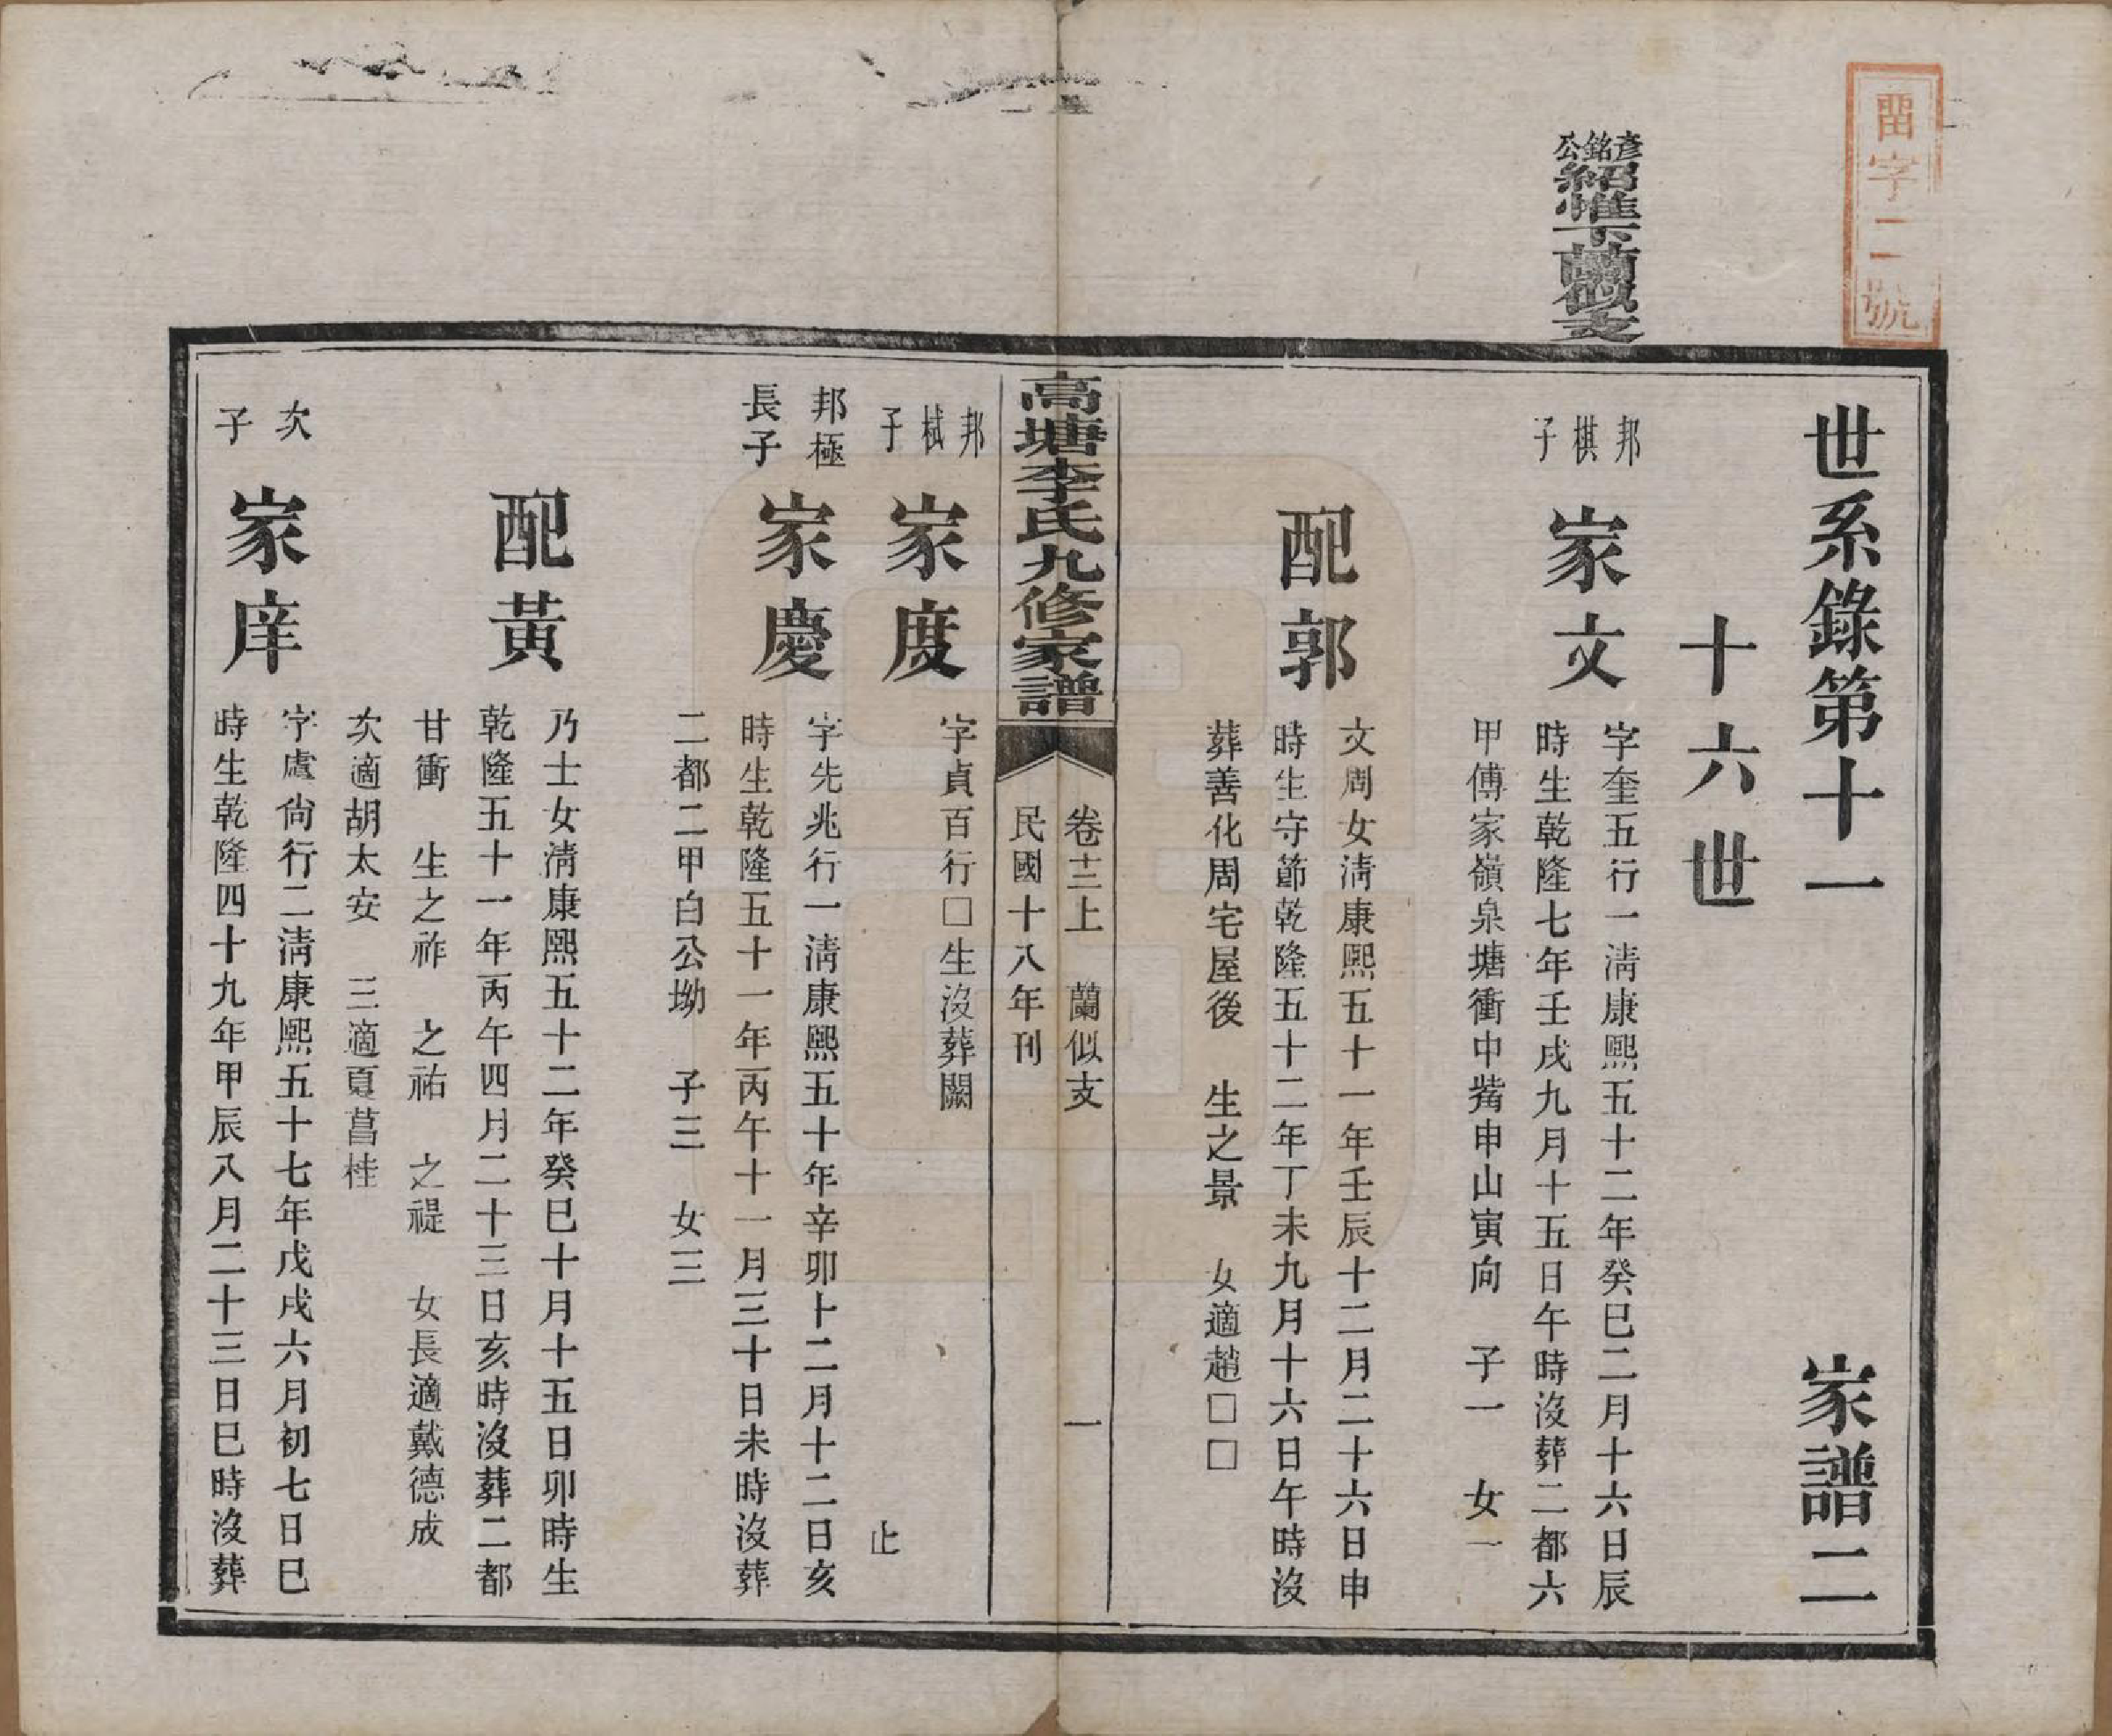 畱字二號
彥銘公紹惟下蘭似支
世系錄第十一 家譜二
十六世
邦棋子
家文
字奎五行一淸康熙五十二年癸巳二月十六日辰
時生乾隆七年壬戌九月十五日午時沒葬二都六
甲傅家嶺泉塘衝中嘴申山寅向 子一 女一
配郭
文周女淸康熙五十一年壬辰十二月二十六日申
時生守節乾隆五十二年丁未九月十六日午時沒
葬善化周宅屋後 生之景 女適趙□□
高塘李氏九修家譜
卷十二上 蘭似支 一
民國十八年刊
邦栻子
家度
字貞百行□生沒葬闕
止
邦極長子
家慶
字先兆行一淸康熙五十年辛卯十二月十二日亥
時生乾隆五十一年丙午十一月三十日未時沒葬
二都二甲白公坳 子三 女三
配黃
乃士女淸康熙五十二年癸巳十月十五日卯時生
乾隆五十一年丙午四月二十三日亥時沒葬二都
甘衝 生之祚 之祜 之禔 女長適戴德成
次適胡太安 三適夏菖桂
次子
家庠
字處尙行二淸康熙五十七年戊戌六月初七日巳
時生乾隆四十九年甲辰八月二十三日巳時沒葬